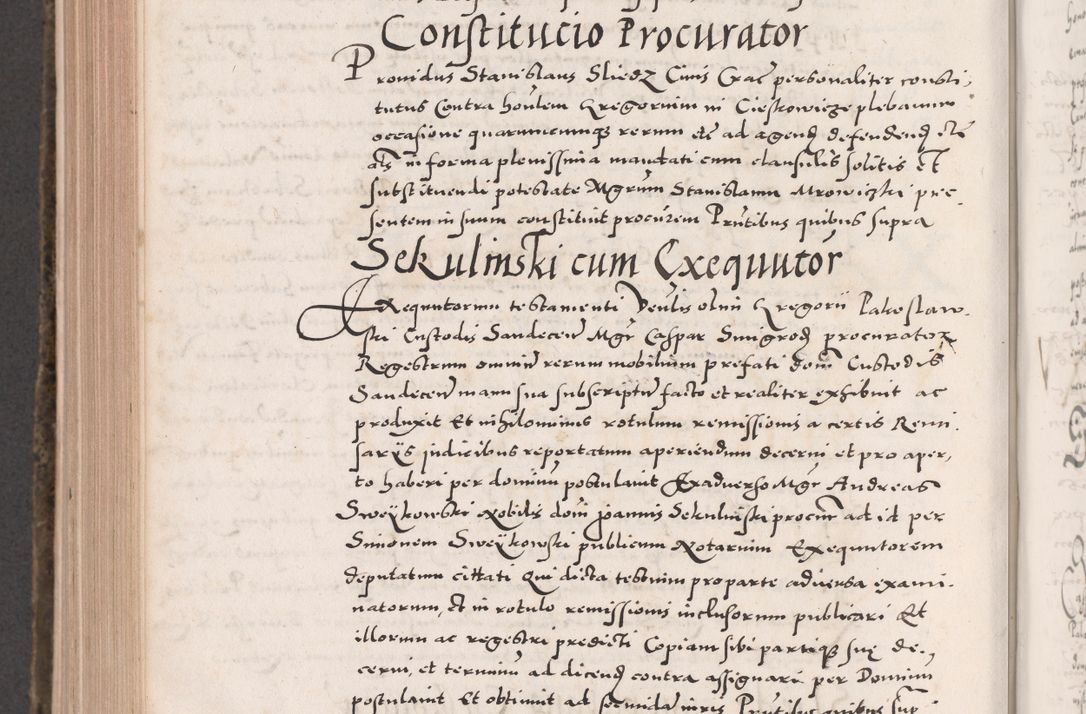 Constitucio Procurator
Providus Stanislaus Sliedz Civis Crac personaliter consti-
tutus Contra honlem Gregorium in Cieskowicze plebanum
occasione quarumcumqz rerum etc ad agend defendend etc
als in forma plenissima mandati cum clausulis solitis Et
substituendi potestate Mgrum Stanislaum Mrowiczki pre-
sentem in suum constituit procurem Prntibus quibus supra
Sekulinski cum Exequutor
Exequutorum testamenti Venlis olim Gregorii Pakoslaw-
ski Custodis Sandecen Mgr Caspar Smigrod procurator
Regestrum omniu rerum mobilium prefati domi Custodis
Sandecen manu sua subscriptu facto et realiter exhibuit ac
produxit Et nihilominus rotulum remissionis a certis Remi-
sarijs judicibus reportatum aperiendum decerni et pro aper-
to haberi per dominu postulavit Ex adverso Mgr Andreas
Sweykowski Nobilis domi Joannis Sekulinski procur ad id per
Simonem Sweykowski publicum Notarium Exequutorem
deputatum cittati Qui dicta testium pro parte adversa exami-
natorum, Et in rotulo remissionis inclusorum publicari Et
illorum ac regestri predicti Copiam sibi partique suę de-
cerni, et terminu ad dicend contra assignari per Dominu
postulavit Et obtinuit ad secunda iuris Prntibus quibus sup